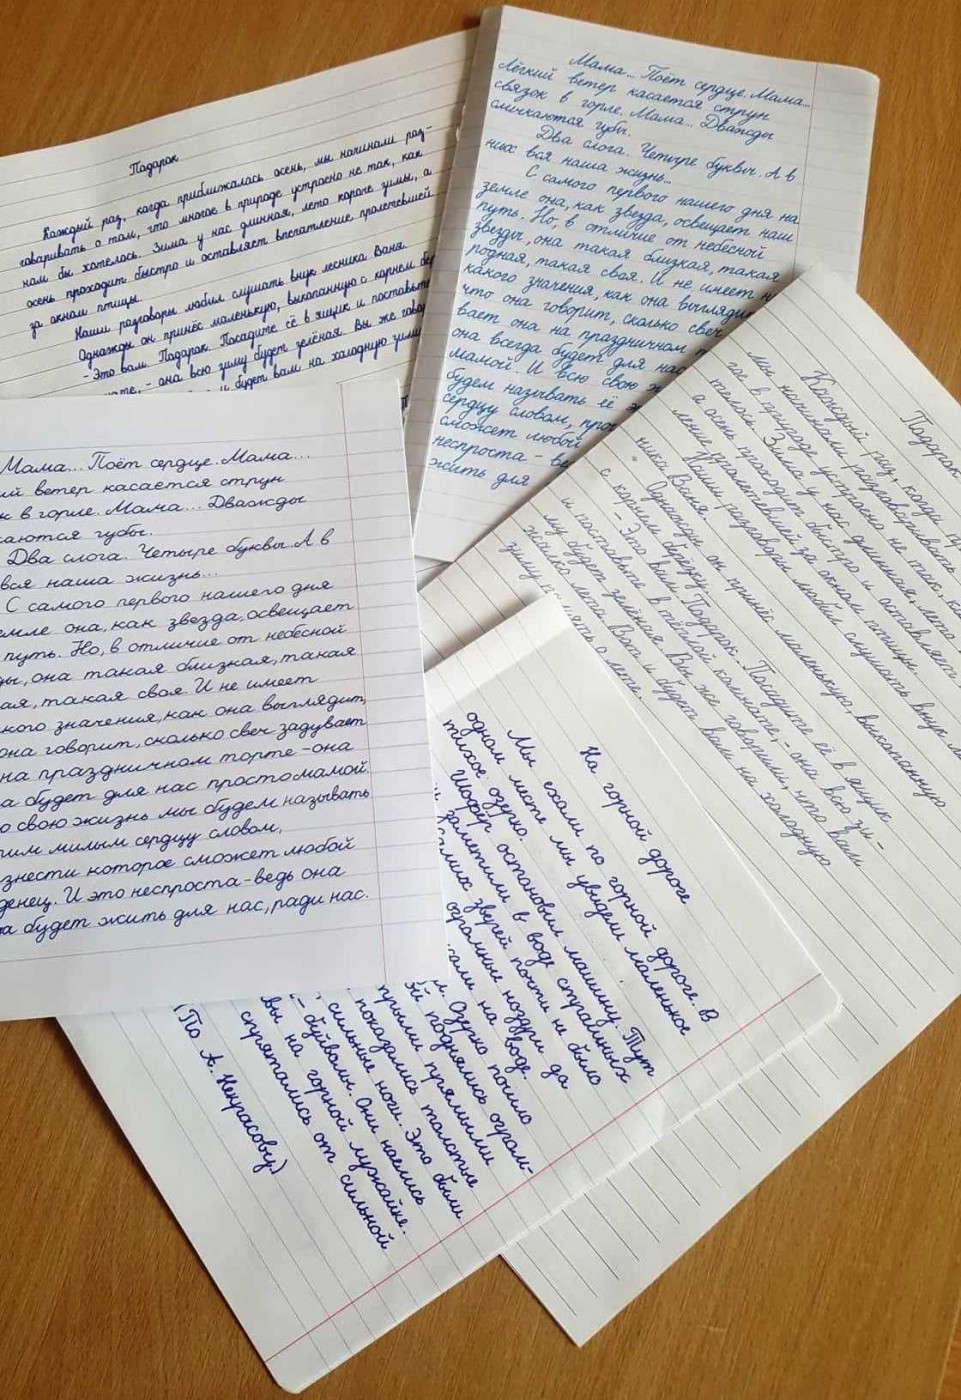 Подарок
Каждый раз, когда приближалась осень, мы начинали раз-
говаривать о том, что многое в природе устроено не так, как
нам бы хотелось. Зима у нас длинная, лето короче зимы, а
осень проходит быстро и оставляет впечатление пролетевшей
за окном птицы.
Наши разговоры любил слушать внук лесника Ваня.
Однажды он принёс маленькую, выкопанную с корнем бер
- Это вам. Подарок. Посадите её в ящик и поставьте
нате, - она всю зиму будет зелёная. Вы же гово
и будет вам на холодную зиму
Мама... Поёт сердце. Мама...
Лёгкий ветер касается струн
связок в горле. Мама... Дважды
смыкаются губы.
Два слога. Четыре буквы. А в
них вся наша жизнь...
С самого первого нашего дня на
земле она, как звезда, освещает наш
путь. Но, в отличие от небесной
звезды, она такая близкая, такая
родная, такая своя. И не имеет н
какого значения, как она выглядит
что она говорит, сколько свеч
вает она на праздничном т
она всегда будет для нас
мамой. И всю свою ж
будем называть её э
сердцу словом, про
сможет любой
неспроста - ве
жить для
Подарок
Каждый раз, когда пр
мы начинали разговаривать
гое в природе устроено не так, ка
телось. Зима у нас длинная, лето
а осень проходит быстро и оставляет
ление пролетевшей за окном птицы.
Наши разговоры любил слушать внук ле
ника Ваня.
Однажды он принёс маленькую, выкопанную
с корнем берёзку.
- Это вам. Подарок. Посадите её в ящик
и поставьте в тёплой комнате, - она всю зи-
му будет зелёная. Вы же говорили, что вам
жалко лета. Вот и будет вам на холодную
зиму память о лете.
Мама... Поёт сердце. Мама...
ий ветер касается струн
к в горле. Мама... Дважды
каются губы.
Два слога. Четыре буквы. А в
вся наша жизнь...
С самого первого нашего дня
емле она, как звезда, освещает
путь. Но, в отличие от небесной
ды, она такая близкая, такая
ая, такая своя. И не имеет
кого значения, как она выглядит,
она говорит, сколько свеч задувает
на праздничном торте - она
а будет для нас просто мамой.
ю свою жизнь мы будем называть
тим милым сердцу словом,
знести которое сможет любой
денец. И это неспроста - ведь она
а будет жить для нас, ради нас.
На горной дороге
Мы ехали по горной дороге. В
одном месте мы увидели маленькое
тихое озерко.
Шофёр остановил машину. Тут
заметили в воде страшных
самих зверей почти не было
огромные ноздри да
гами на воде.
Озерко пошло
ой поднялись огром-
прыми прямыми
показались толстые
сильные ноги. Это были
- буйволы. Они наелись
вы на горной лужайке.
спрятались от сильной
(По А. Некрасову)